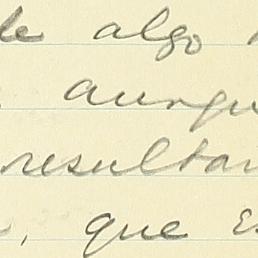 de algo
aunqu
resultan
, que es